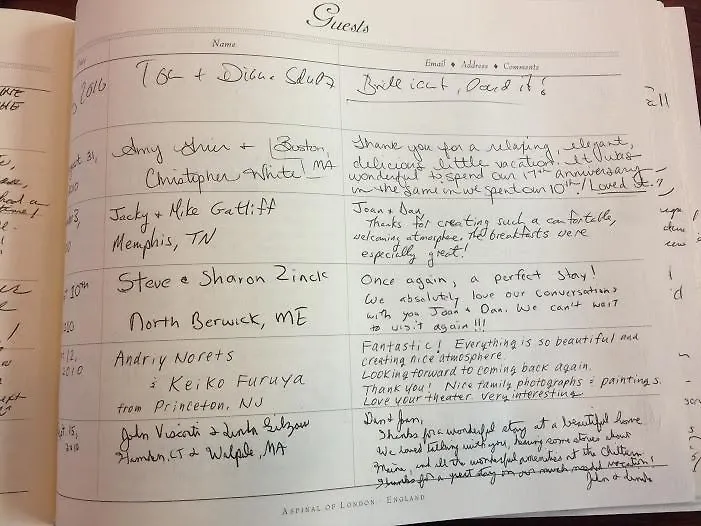 Guests
Name
Email ♦ Address ♦ Comments
2010
Tom + Diane
Brilliant, !
31,
2010
Amy + Boston, MA
Christopher White
Thank you for a relaxing, elegant,
delicious little vacation. It was
wonderful to spend our 17th anniversary
in the same inn we spent our 10th! Loved it.
Jacky + Mike Gatliff
Memphis, TN
Joan + Dan,
Thanks for creating such a comfortable,
welcoming atmosphere. The breakfasts were
especially great!
10th
Steve & Sharon Zinck
North Berwick, ME
Once again, a perfect stay!
We absolutely love our conversations
with you Joan & Dan. We can't wait
to visit again!!!
12,
2010
Andriy Norets
& Keiko Furuya
from Princeton, NJ
Fantastic! Everything is so beautiful and
creating nice atmosphere.
Looking forward to coming back again.
Thank you! Nice family photographs & paintings.
Love your theater. Very interesting
15,
2010
John Visconti & Linda
Hamden, CT & Walpole, MA
Dan & Joan,
Thanks for a wonderful stay at a beautiful home
We loved talking with you, hearing some stories about
Maine, and all the wonderful amenities at the
Thanks for a great stay on our much needed vacation!
John & Linda
ASPINAL OF LONDON · ENGLAND